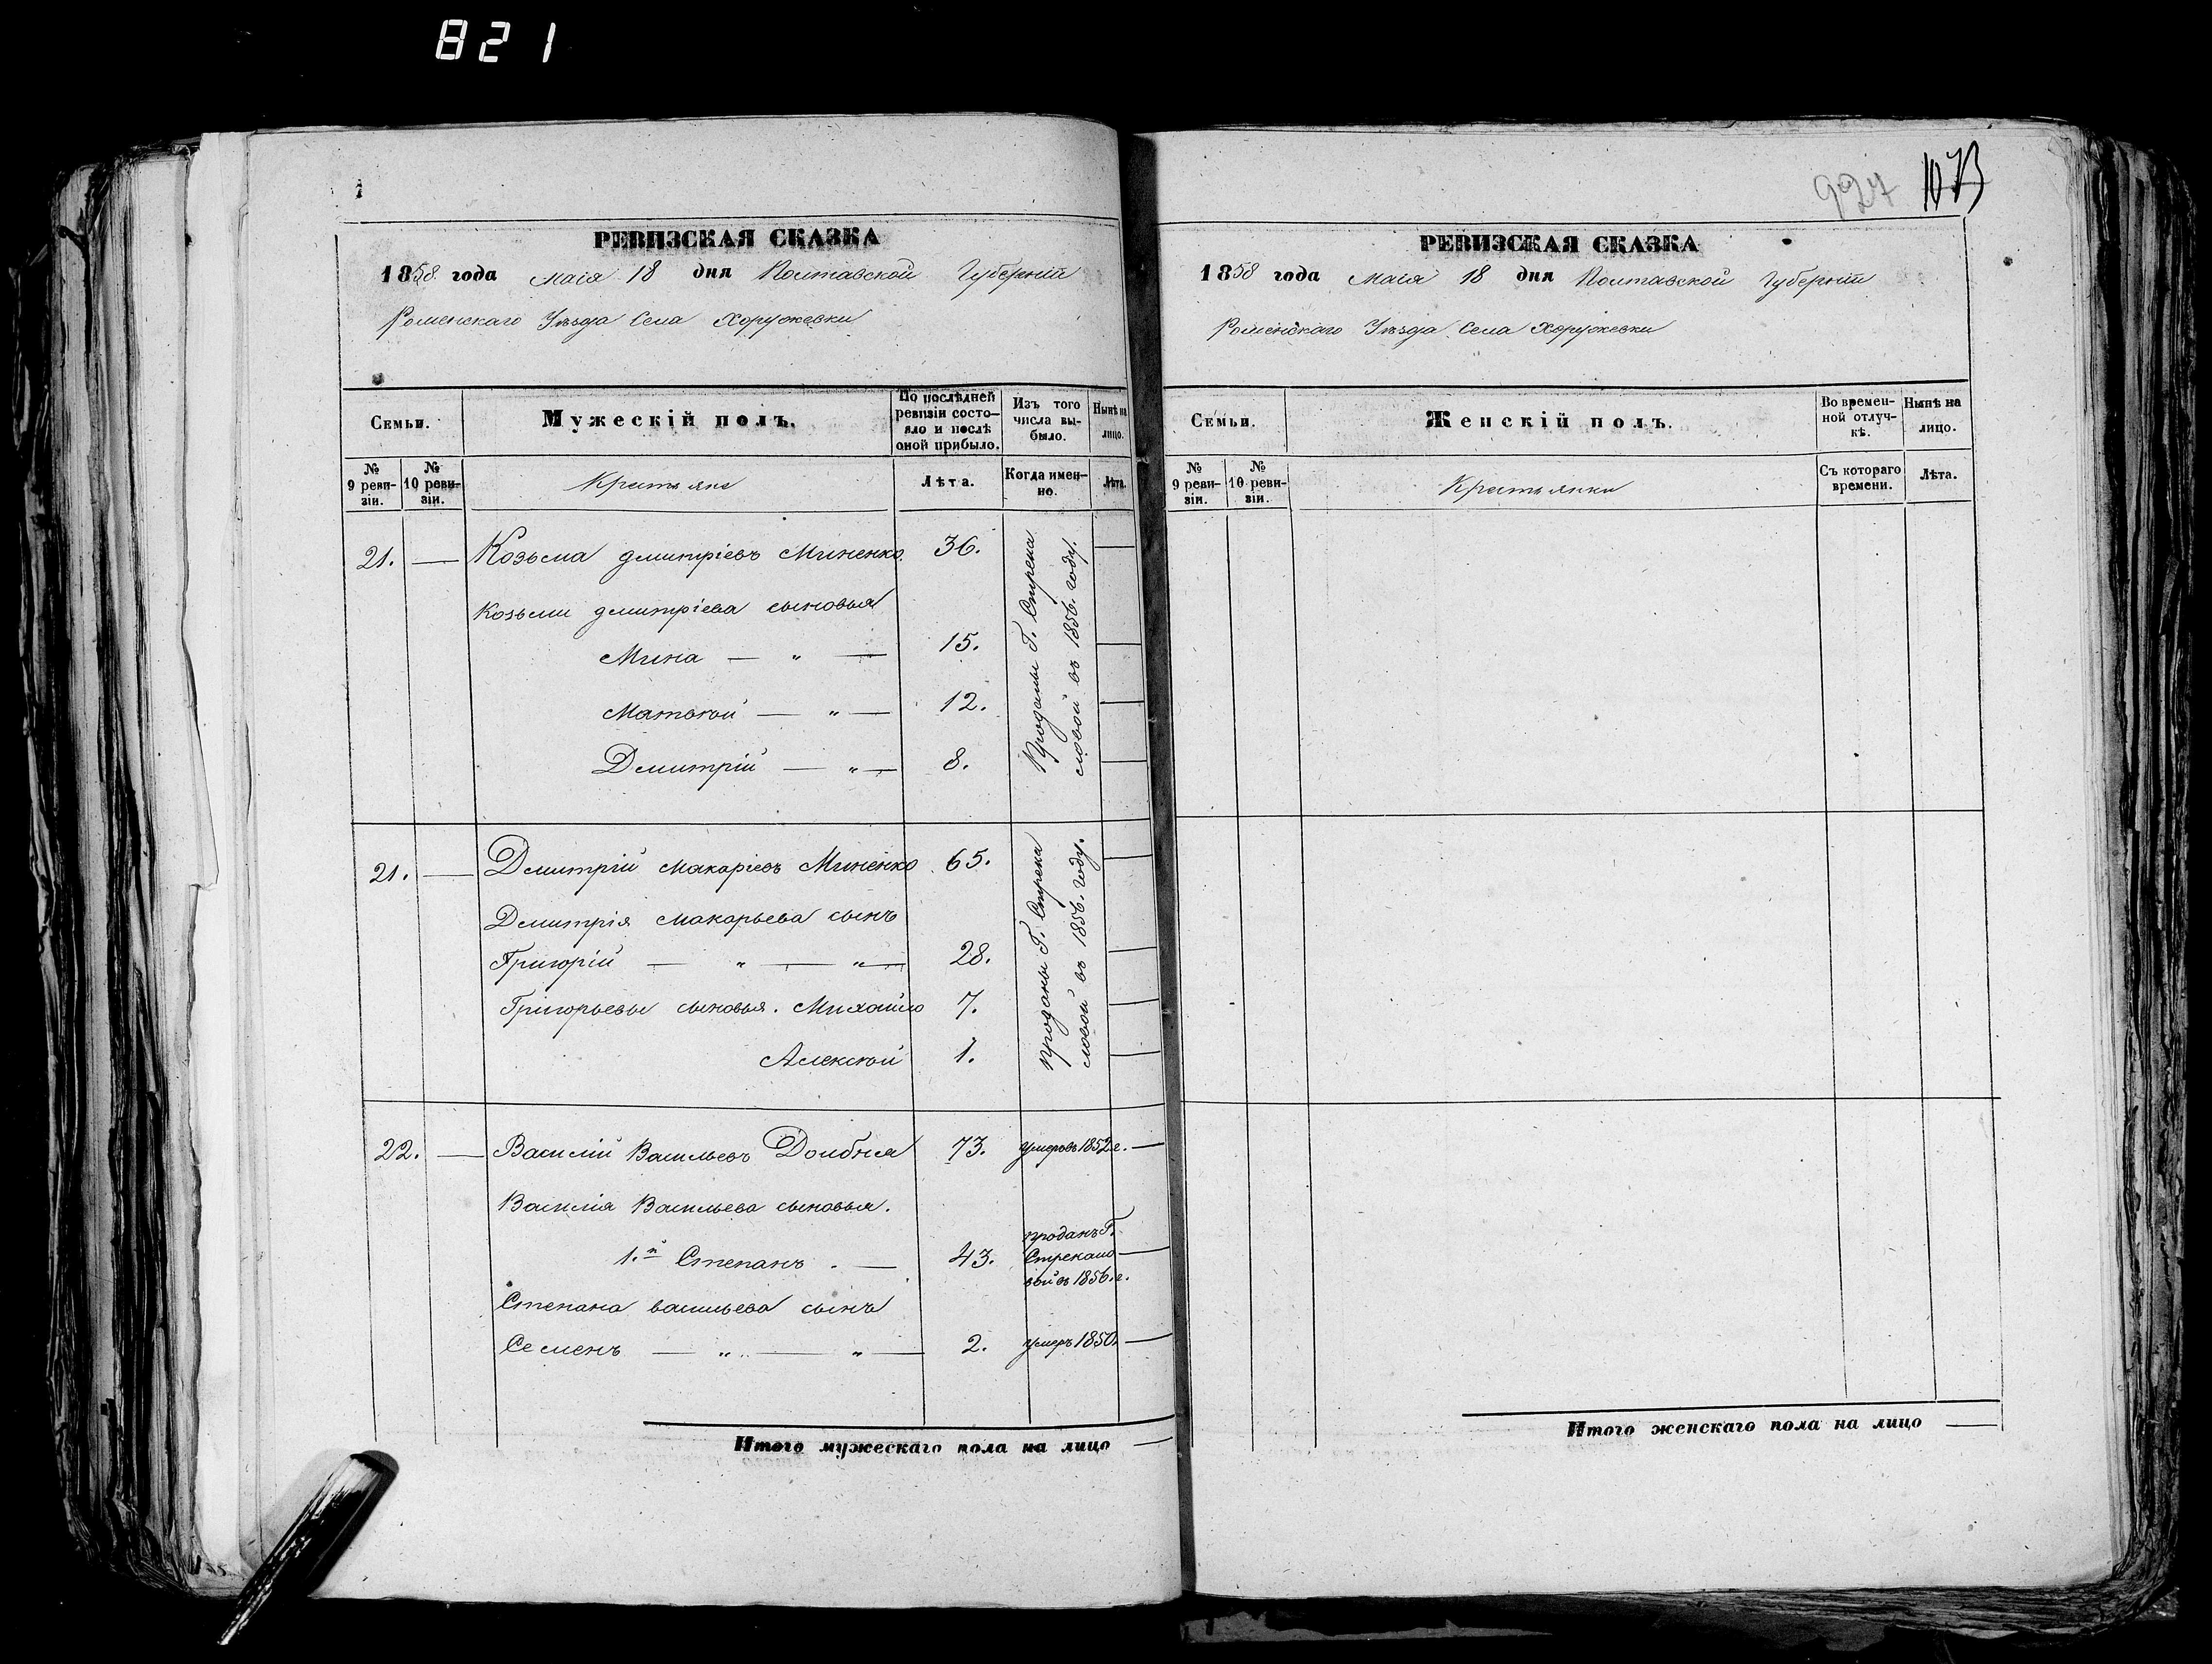 821
РЕВИЗСКАЯ СКАЗКА
1858 года Маія 18 дня Полтавской Губерніи
Роменскаго Уѣзда Села Хоружевки
Семьи.
Мужескій полъ.
По послѣдней ревизіи состояло и послѣ оной прибыло.
Изъ того числа выбыло.
Нынѣ на лицо.
№ 9 ревизіи.
№ 10 ревизіи.
Крестьяне
Лѣта.
Когда именно.
Лѣта.
21. — Козьма Дмитріевъ Миненко 36. —
Козьмы Дмитріева сыновья
Мина — " — 15. —
Матвѣй — " — 12. —
Дмитрій — " — 8. —
Проданы Г. Стрека
ловой въ 1856. году.
21. — Дмитрій Макаріевъ Миненко 65. —
Дмитрія Макарьева сынъ
Григорій — " — " — 28. —
Григорьевы сыновья. Михайло 7. —
Алексѣй 1. —
проданы Г. Стрека
ловой въ 1856. году.
22. — Василій Васильевъ Долбня 73. умеръ въ 1852 г. —
Василія Васильева сыновья.
1.й Степанъ . — 43. проданъ Г.
Стрекало —
вой въ 1856. г.
Степана Васильева сынъ
Семенъ — " — " — 2. умеръ 1850. —
Итого мужескаго пола на лицо —
927 1073
РЕВИЗСКАЯ СКАЗКА
1858 года Маія 18 дня Полтавской Губерніи
Роменскаго Уѣзда Села Хоружевки
Семьи.
Женскій полъ.
Во временной отлучкѣ.
Нынѣ на лицо.
№ 9 ревизіи.
№ 10 ревизіи.
Крестьянки
Съ котораго времени.
Лѣта.
Итого женскаго пола на лицо —